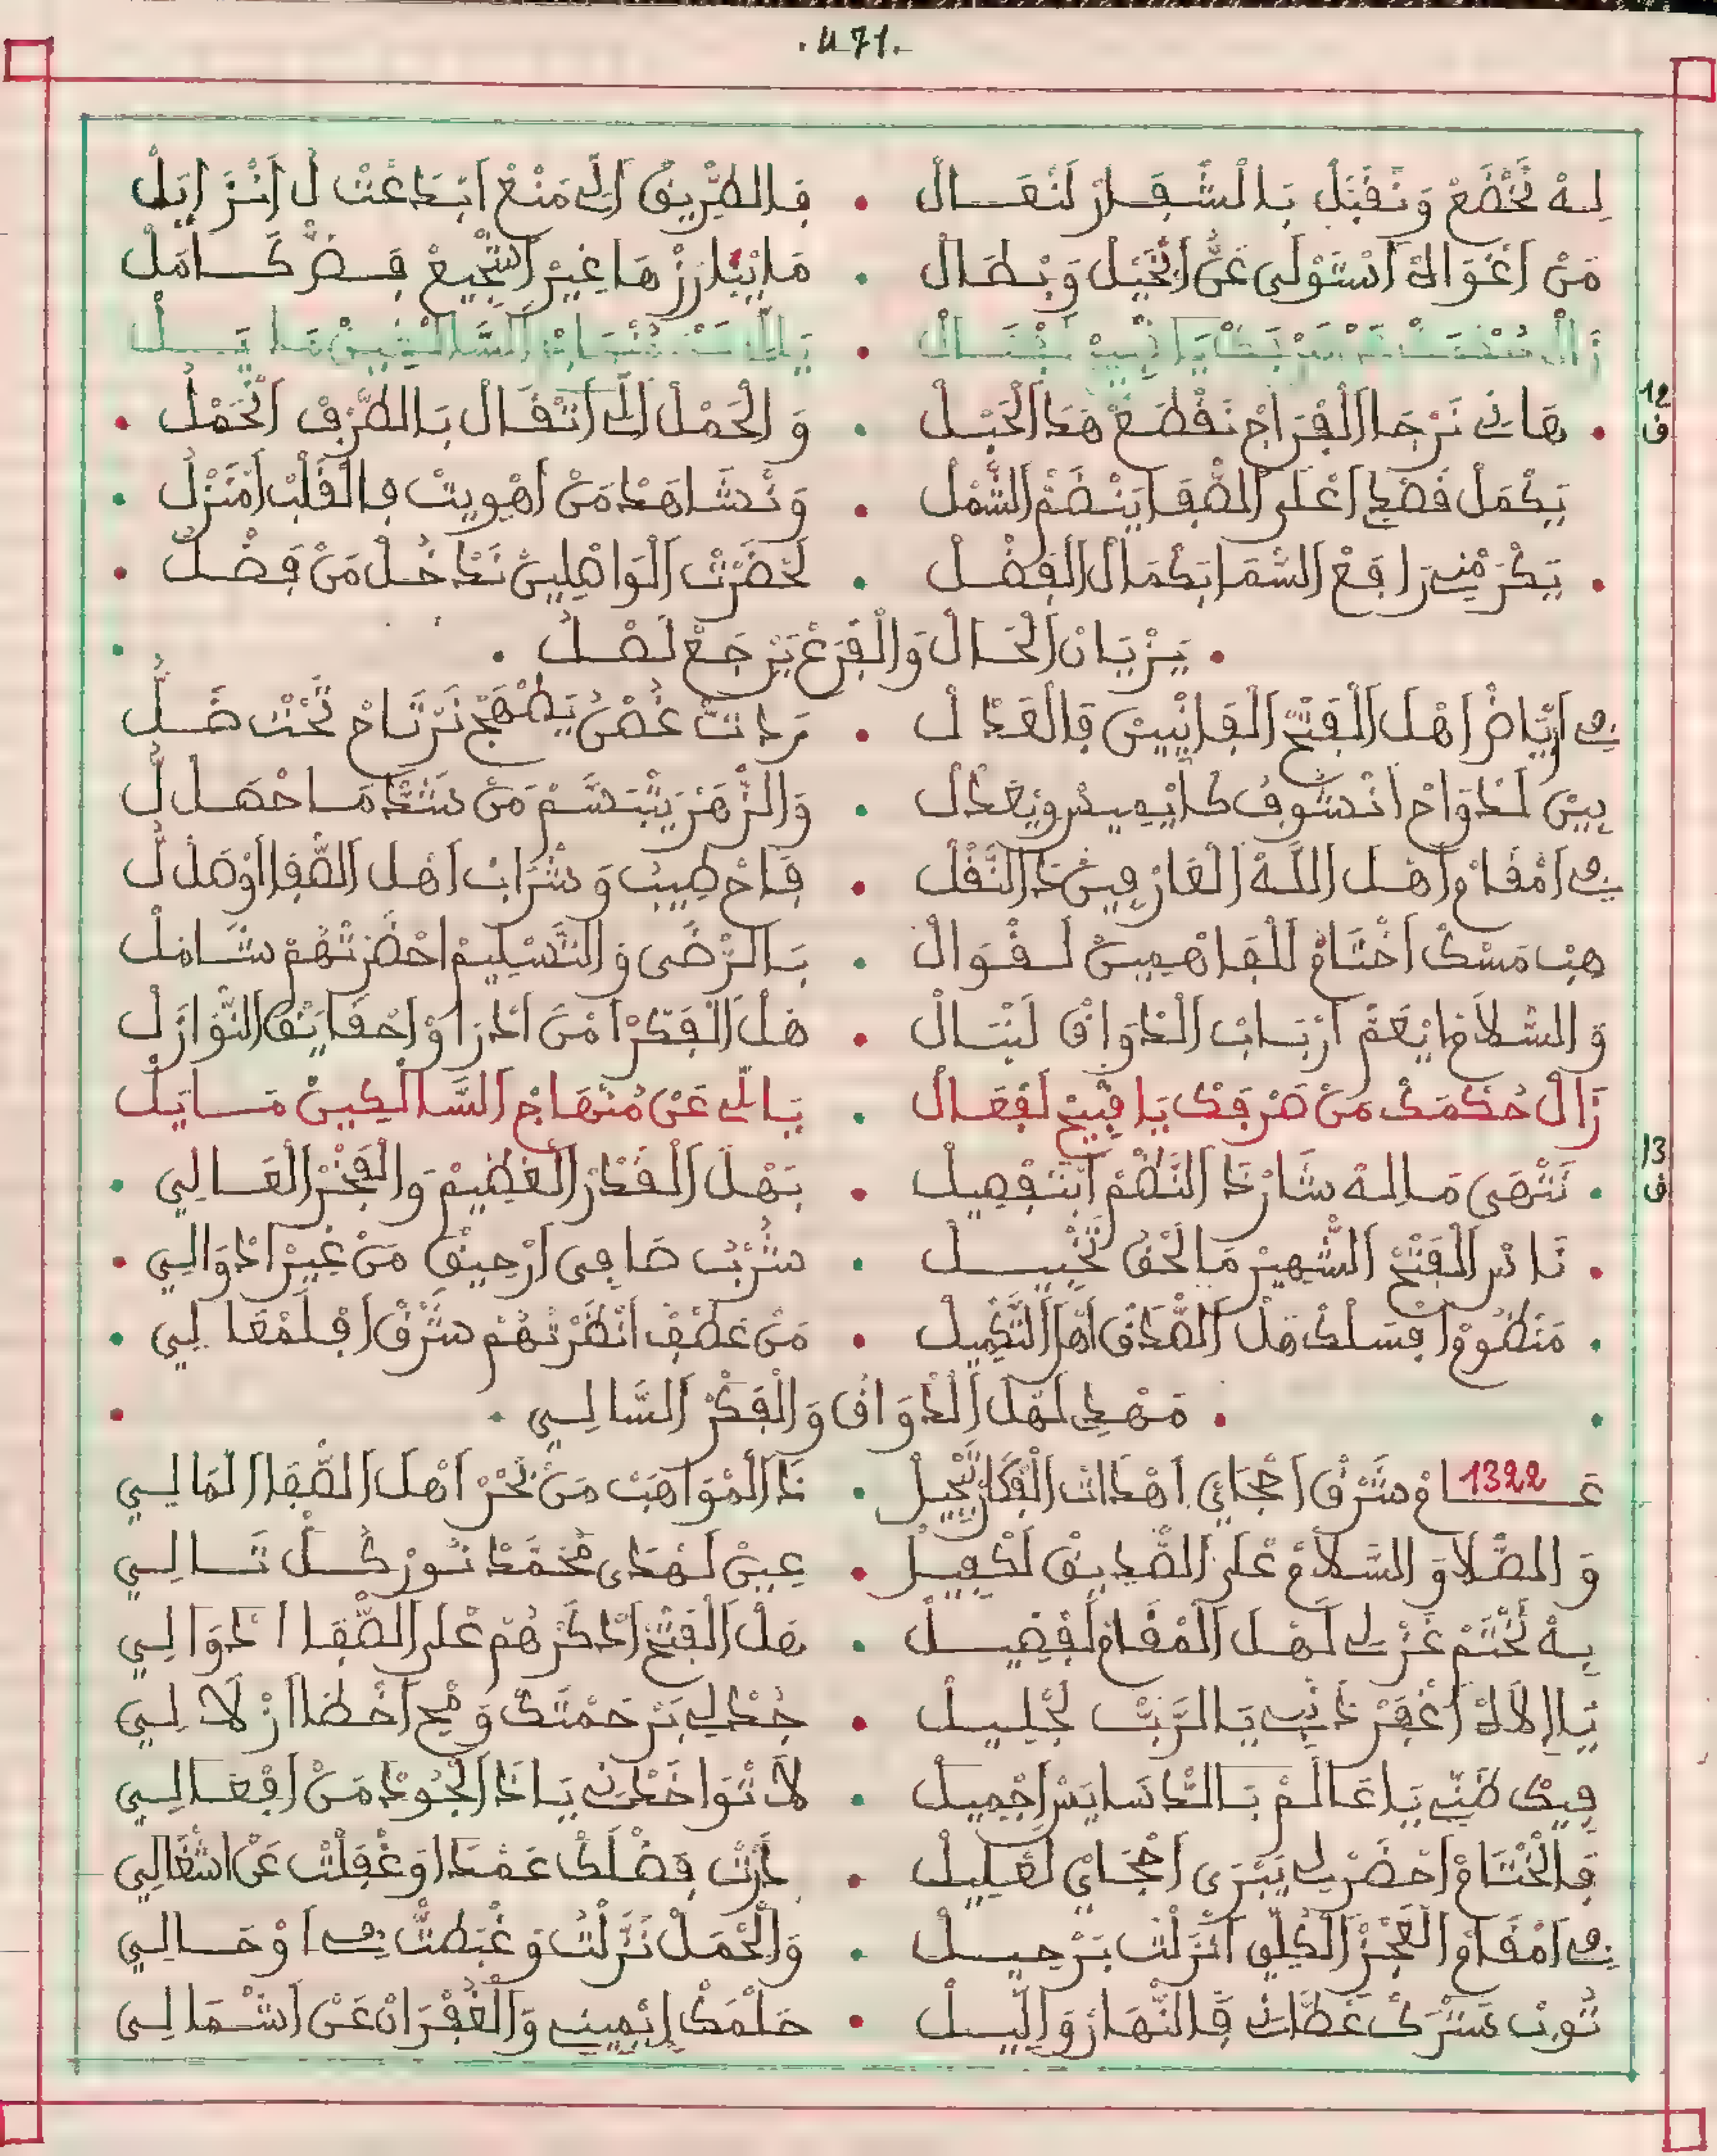 .471.
لـهْ نَخْضَعْ وَنْقَبَّلْ بَالْشْفَارْ لَنْعَـالْ • فَالطّْرِيقْ اَلِّي مَنْعْ اَبْدَاعَتْ لُ اَنْزَايَلْ
مَنْ اَغْوَاهْ اَسْتَوْلَى عَنْ اَلْخَيْلْ وَبْطَالْ • مَا يْبَارَزْهَا غِيرْ اَشْجِيعْ فَـضْرْ كَـامَلْ
زَالْ حُكْمَكْ مَنْ صَرْفَكْ يَا قْبِيحْ لَفْعَالْ • يَاللِّي عَنْ مُنْهَاجْ اَلسَّالْكِينْ مَـايَلْ
12
ف
• هَانِي نَرْجَا اَلْفْرَاجْ نَقْطَعْ هَدَا الْحْبَلْ • وَالْحَمْلْ اَلِّي اَتْقَالْ بَالطّْرَفْ اَنْحَمْلُ •
يَكْمَلْ قَصْدِي اَعْلَى اَلصّْفَا يَنْضَمّْ اَلشّْمَلْ • وَنْشَاهَدْ مَنْ اَهْوِيتْ فَالْقَلْبْ اَمَنْزْلُ •
• يَكْرَمْنِي رَافَعْ السّْمَا بَكْمَالْ اَلْفَضْلْ • لَحْضَرْتْ اَلْوَاصْلِينْ نَدْخُلْ مَنْ فَضْلُ •
• يَزْيَانْ اَلْحَـالْ وَالْفَرْعْ يَرْجَعْ لَصْلُ •
فِي اَرْيَاضْ اَهْلْ اَلْفَتْحْ اَلْفَانْيِينْ فَالْعَدْلْ • رَدَاتْ غُصْنُ يَطْهَجْ نَرْتَاحْ تَحْتْ ضَـلُّ
بِينْ لَدْوَاحْ اَنْشُوفْ كَايْمِيسْ وِيعْدَلْ • وَالزّْهَرْ يَتْبَسَّمْ مَنْ شَدّْ مَـا حْصَلْ لُ
فِي اَمْقَامْ اَهْـلْ اَللَّهْ اَلْعَارْفِينْ دَا النّْقَلْ • فَاحْ طِيبُ وَشْرَابْ اَهْلْ اَلصّْفَا اَوْصَلْ لُ
هِبْ مَسْكْ اَخْتَامْ لَلْفَاهْمِينْ لَـقْـوَالْ • بَـالرّْضَى وَالتَّسْلِيمْ اَحْضَرْتْهُمْ شَـامَلْ
وَالسّْلَامْ اَيْعَمّْ اَرْبَـابْ اَلدْوَاقْ لَنْبَـالْ • هَلْ اَلْفَكْرْ اَمْنْ اَدْرَاوْ اَحْقَايْقْ النّْوَازَلْ
زَالْ حُكْمَكْ مَنْ صَرْفَكْ يَا قْبِيحْ لَفْعَالْ • يَـاللِّي عَنْ مُنْهَاجْ اَلسَّالْكِينْ مَـايَلْ
13
ف
• نَنْهَى مَـالـهْ شَارْ دَا النَّظْمْ اَبْتَفْصِيلْ • بَهْلْ اَلْقَدْرْ اَلْعْظِيمْ وَالْفَخْرْ الْعَـالِي •
• نَاسْ اَلْفَتْحْ اَلشّْهِيرْ مَا لْحَقْ تَخْيِيـلْ • شُرْبُ صَافِي اَرْحِيقْ مَنْ غِيرْ اَدْوَالِي •
• مَنْظُومْ اَفْسَلْكْ هَلْ اَلصّْدَقْ اَهْلْ اَلتَّكْمِيلْ • مَنْ عَطْفْ اَنْظَرْتْهُمْ شَرْقْ اَفْلَمْعَالِي •
• مَهْدِي لَهْلْ اَلدْوَاقْ وَالْفَكْرْ اَلسَّالِـي •
عَـــامْ 1322 شَرْقْ اَحْجَايْ اَهْدَاتْ اَلْفْكَارْ نْجِيلْ • دَا اَلْمْوَاهَبْ مَنْ بْحَرْ اَهْلْ اَلصّْفَا اَلْمَالِـي
وَالصّْلَا وَالسَّلَامْ عْلَى اَلصّْدِيقْ لَكْفِيـلْ • عِينْ لَـهْدَى مُحَمَّدْ نُـورْ كُـلْ تَـالِـي
بِـهْ نَخْتَمْ غَزْلِي لَهْـلْ اَلْمْقَامْ لَفْضِيـلْ • هَلْ اَلْفَتْحْ اَدْكَرْهُمْ عْلَى اَلصّْفَا اَدْوَالِـي
يَا اِلَاهْ اَغْفَرْ دَنْبِي يَـالرَّبّْ لَجْلِيـلْ • جُدْلِي بَرْحَمْتَكْ وَمْحِ اَخْطَا اَزْلَالِـي
فِيكْ ظَنِّي يَا عَالَمْ بَالدّْسَايَسْ اَجْمِيلْ • لَا تْوَاخَدْنِي يَـادَا اَلْجُودْ مَنْ اَفْعَالِـي
فَالْخْتَامْ اَحْضَرْلِي يَبْرَى اَحْجَايْ لَعْلِيلْ • دَرْتْ فَضْلَكْ عَمْدَا وَغْفَلْتْ عَنْ اَشْغَالِي
فِي اَمْقَامْ اَلْعْجَزْ اَلْكُلِّي اَنْزَلْتْ بَرْحِيـلْ • وَالْحْمَلْ نَزَّلْتْ وَغْبَطْتْ فِي اَوْحَـالِـي
ثُوبْ سَتْرَكْ غَطَّانِي فَالنّْهَارْ وَاللِّيـلْ • حَلْمَكْ اِيْمِينِي وَالْغُفْرَانْ عَنْ اَشْـمَالِـي